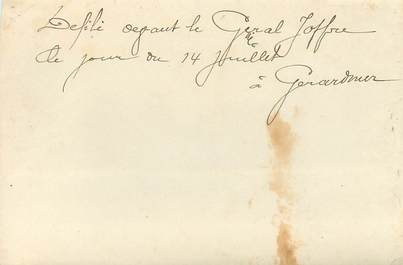 Defilé devant le Gral Joffre
le jour du 14 Juillet
à Gérardmer